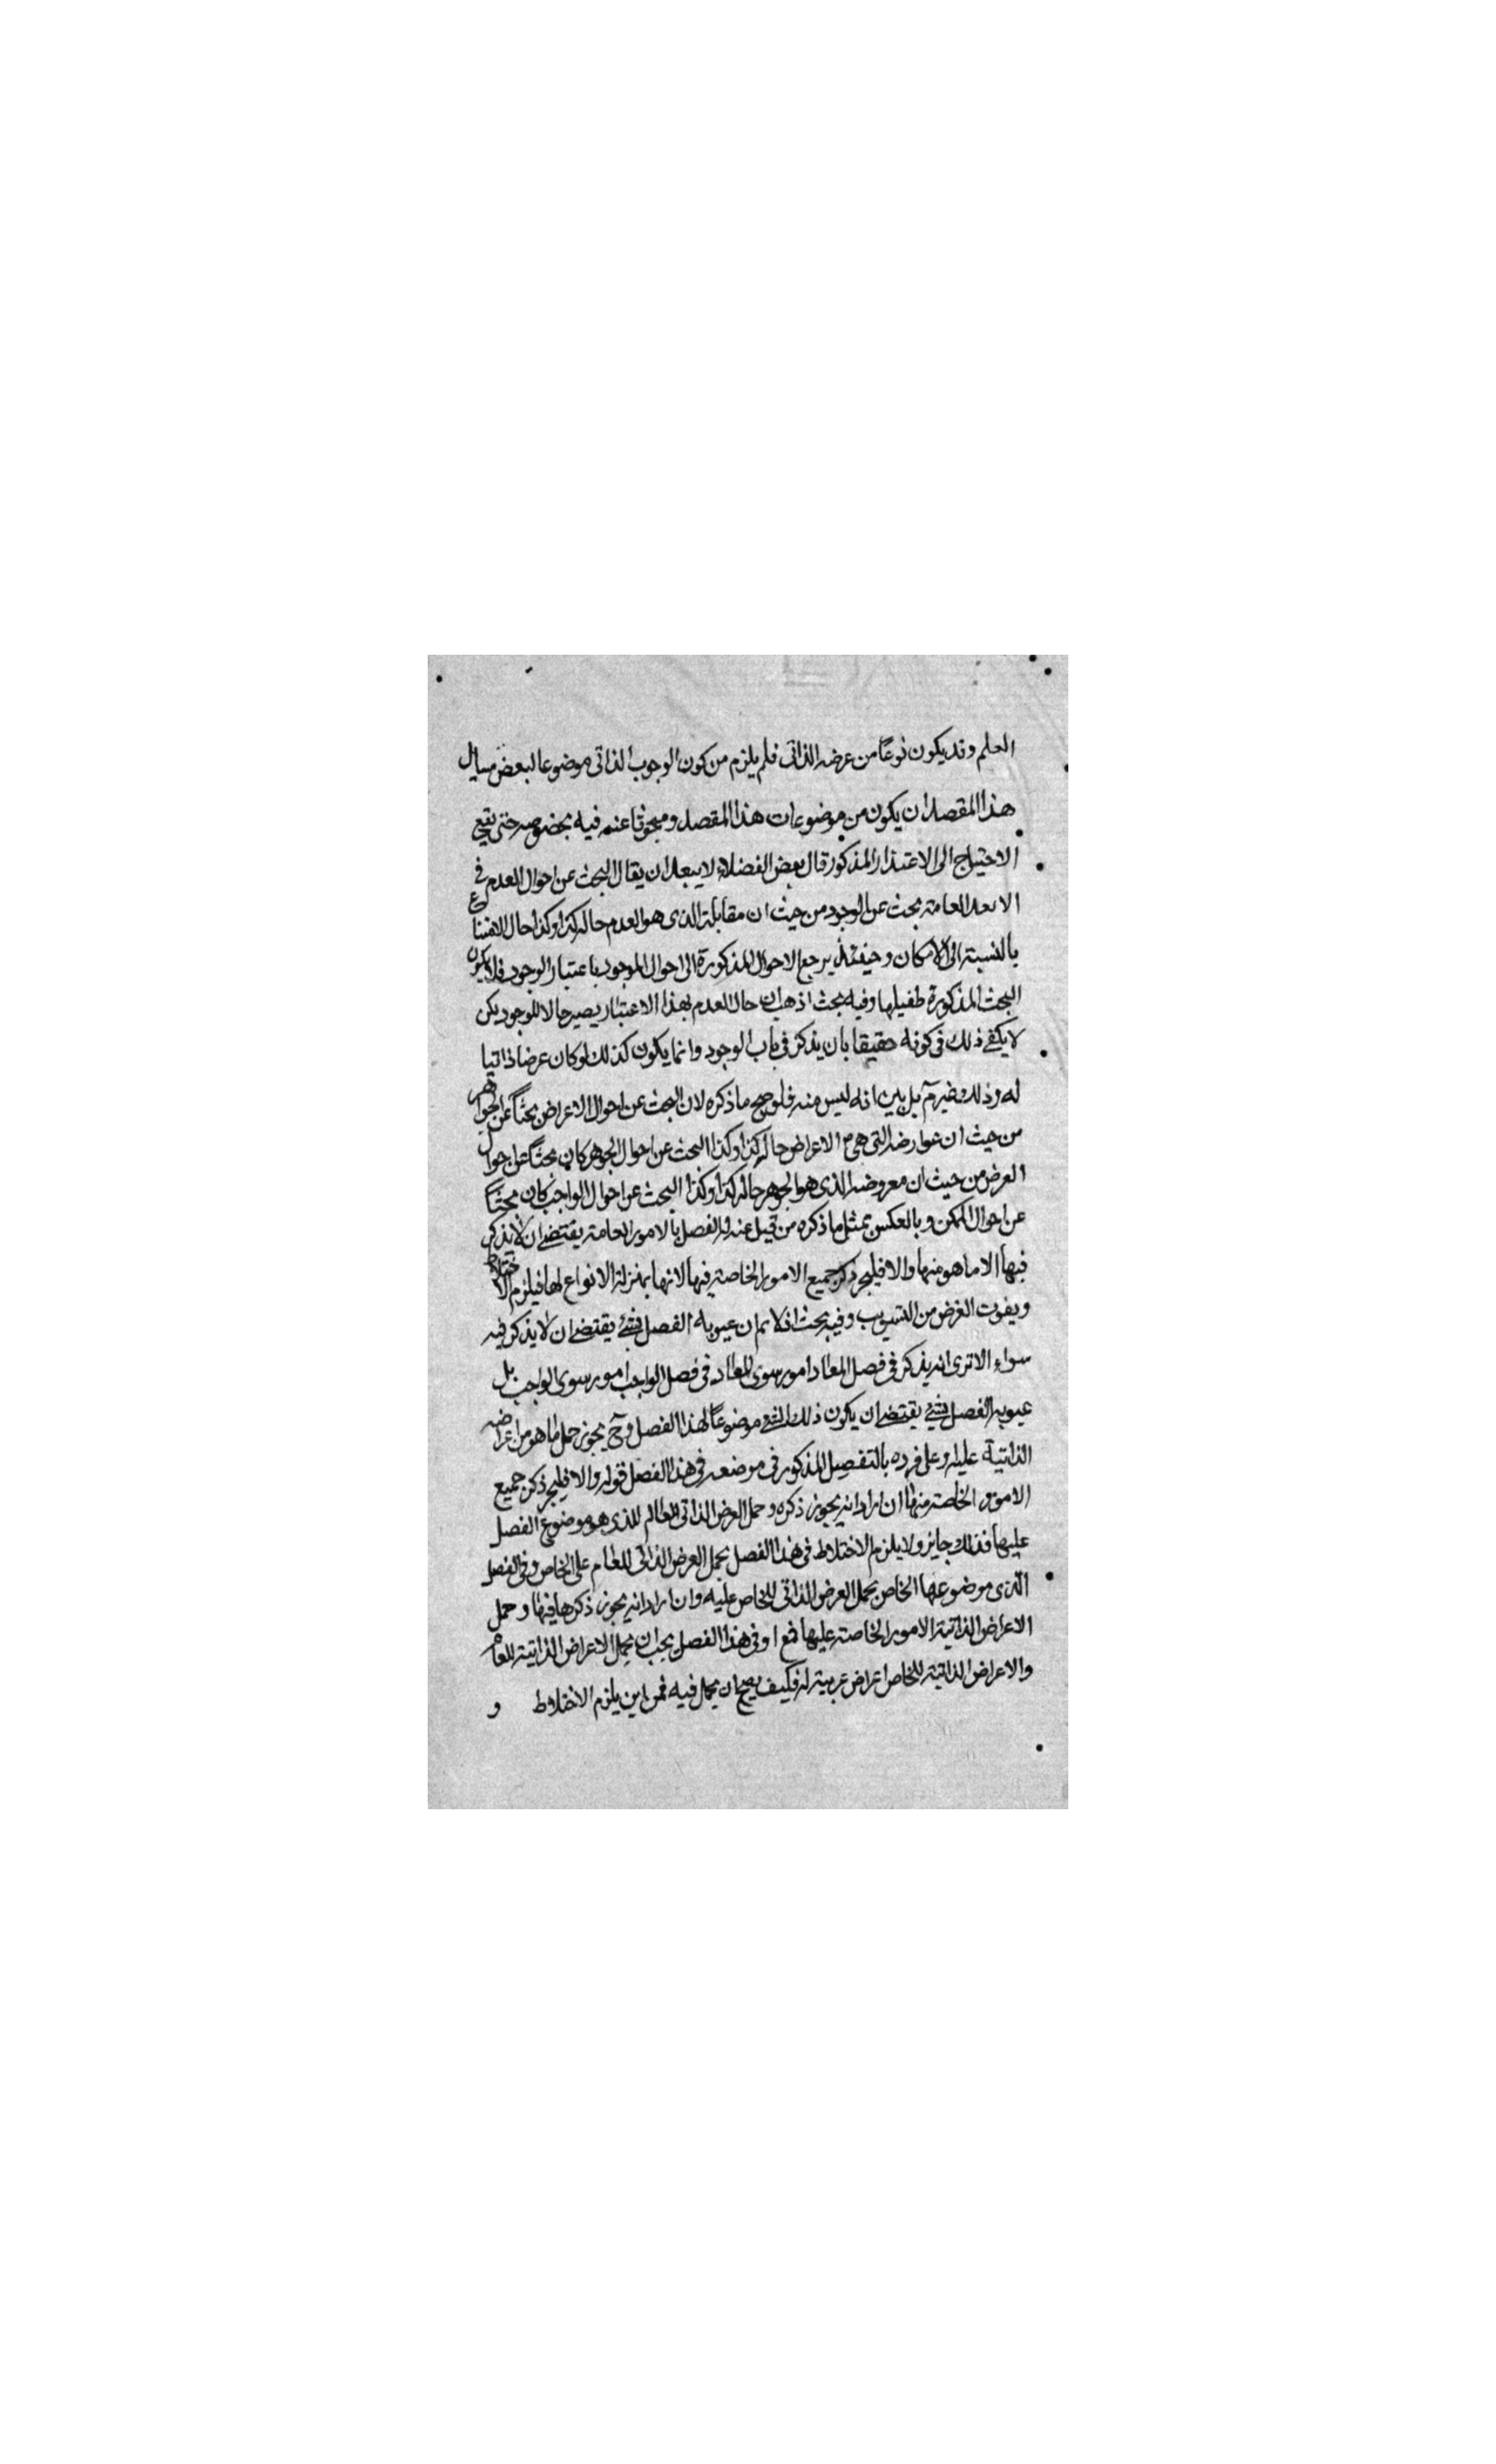 العلم وقد يكون نوعًا من عرضه الذاتى فلم يلزم من كون الوجوب الذاتى موضوعا لبعض مسايل
هذا المقصد ان يكون من موضوعات هذا المقصد ومبحوثا عنه فيه بخصوصه حتى يقع
الاحتياج الى الاعتذار المذكور قال بعض الفضلاء لا يبعد ان يقال البحث عن احوال العدم فى
العامة بحث عن الوجود من حيث ان مقابلة الذى هو العدم حاله كذا وكذا حال الامتناع
بالنسبة الى الامكان وحينئذ يرجع الاحوال المذكورة الى احوال الموجود باعتبار الوجود فلا يكون
البحث المذكورة طفيلها وفيه بحث اذ هب ان حال العدم بهذا الاعتبار يصير حالا للوجود لكن
لا يكفى ذلك فى كونه حقيقا بان يذكر فى باب الوجود وانما يكون كذلك لو كان عرضا ذاتيا
له وذلك غير مّ بل بين انه ليس منه فلو صح ما ذكره لان البحث عن احوال الاعراض بحثًا عن الجواهر
من حيث ان عوارضه التى هى الاعراض حاله كذا وكذا البحث عن احوال الجوهر كان بحثًا عن احوال
العرض من حيث ان معروضه الذى هو الجوهر حاله كذا وكذا البحث عن احوال الواجب كان بحثًا
عن احوال الممكن وبالعكس بمثل ما ذكره من قبل عنه الفصل بالامور العامة يقتضى ان لا يذكر
فيها الا ما هو منها والا فليجز ذكر جميع الامور الخاصة فيها لانها بمنزلة الانواع لها فيلزم الاختلاط
ويفوت الغرض من التبويب وفيه بحث اذ لا نم ان عنوبه الفصل بشئ يقتضى ان لا يذكر فيه
سواه الا ترى انه يذكر فى فصل المعاد امور سوى المعاد فى فصل الواجب امور سوى الواجب بل
عنوبه الفصل بشئ يقتضى ان يكون ذلك الشئ موضوعًا لهذا الفصل وح يجوز حمل ما هو من اعراضه
الذاتية عليه وعلى فرده بالتفصيل المذكور فى موضعه فى هذا الفصل قوله والا فليجز ذكر جميع
الامور الخاصة منها ان اراد انه يجوز ذكره وحمل العرض الذاتى العالم الذى هو موضوع الفصل
عليها فذلك جايز ولا يلزم الاختلاط فى هذا الفصل يحمل العرض الذاتى للعام على الخاص وفى الفصل
الذى موضوعها الخاص يحمل العرض الذاتى للخاص عليه وان اراد انه يجوز ذكرها فيها وحمل
الاعراض الذاتية الامور الخاصة عليها فمع اوفى هذا الفصل يجب ان يحمل الاعراض الذاتية للعام
والاعراض الذاتية للخاص اعراض غريبة له فكيف يصح ان يحمل فيه فمن اين يلزم الاختلاط و